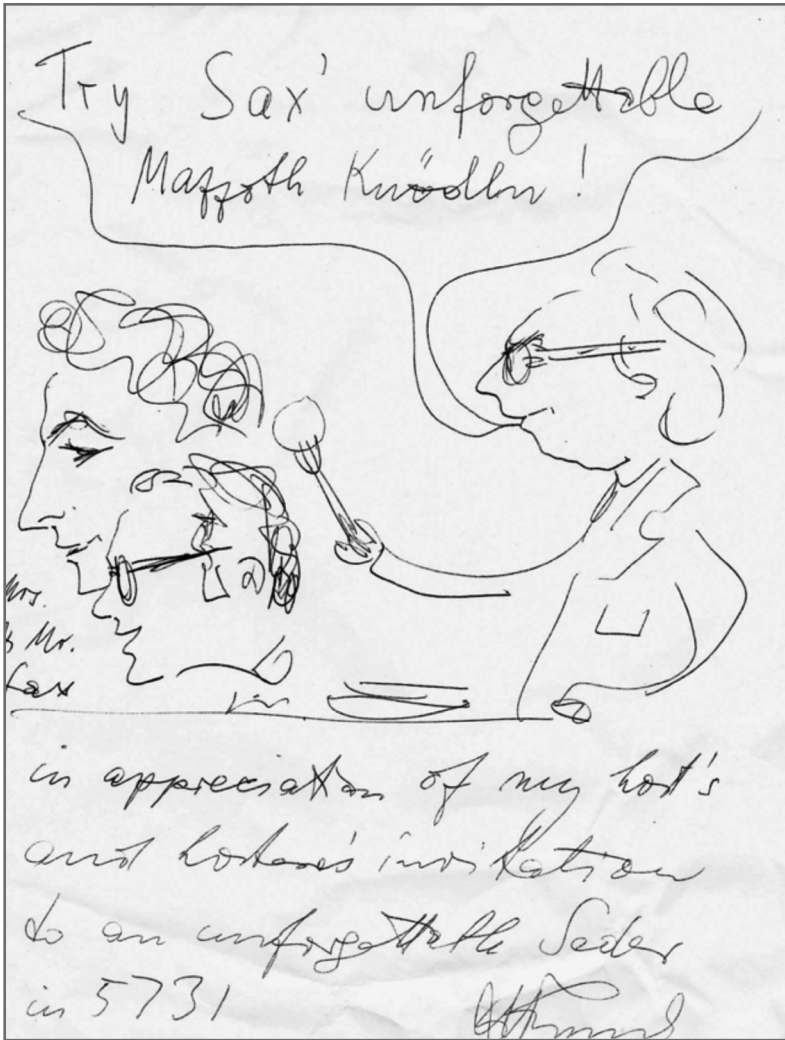 Try Sax' unforgettable
Mazzoth Knödln!
Mrs.
& Mr.
Sax
in appreciation of my host's
and hostess's invitation
to an unforgettable Seder
in 5731